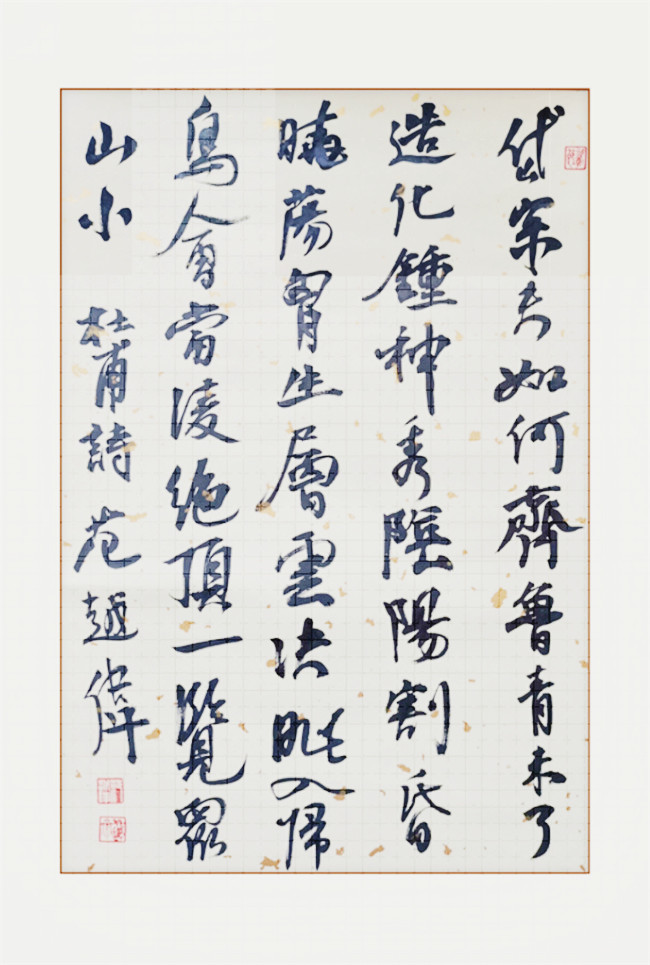 岱宗夫如何齊魯青未了
造化鍾神秀陰陽割昏
曉蕩胷生層雲決眦入帰
鳥會當凌絕頂一覽眾
山小 杜甫詩 范越偉